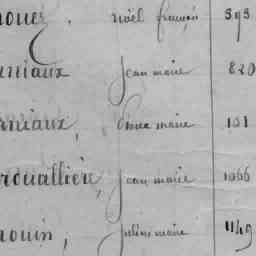 nouez, noël françois 393
uniaux Jean marie 820
eniaux, marie 101
rouallière, Jean marie 1066
nouin, Julien marie 1149